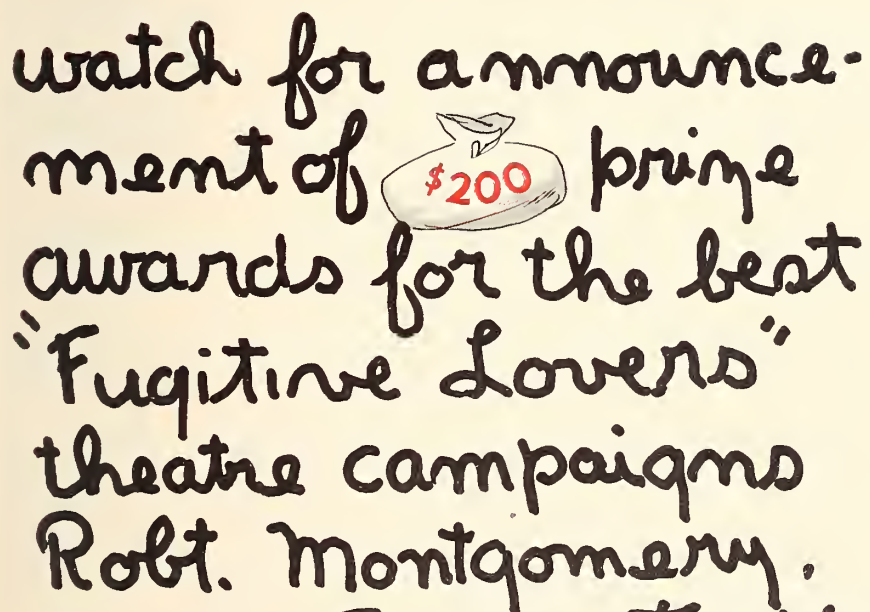 watch for announce-
ment of $200 prize
awards for the best
"Fugitive Lovers"
theatre campaigns
Robt. Montgomery.